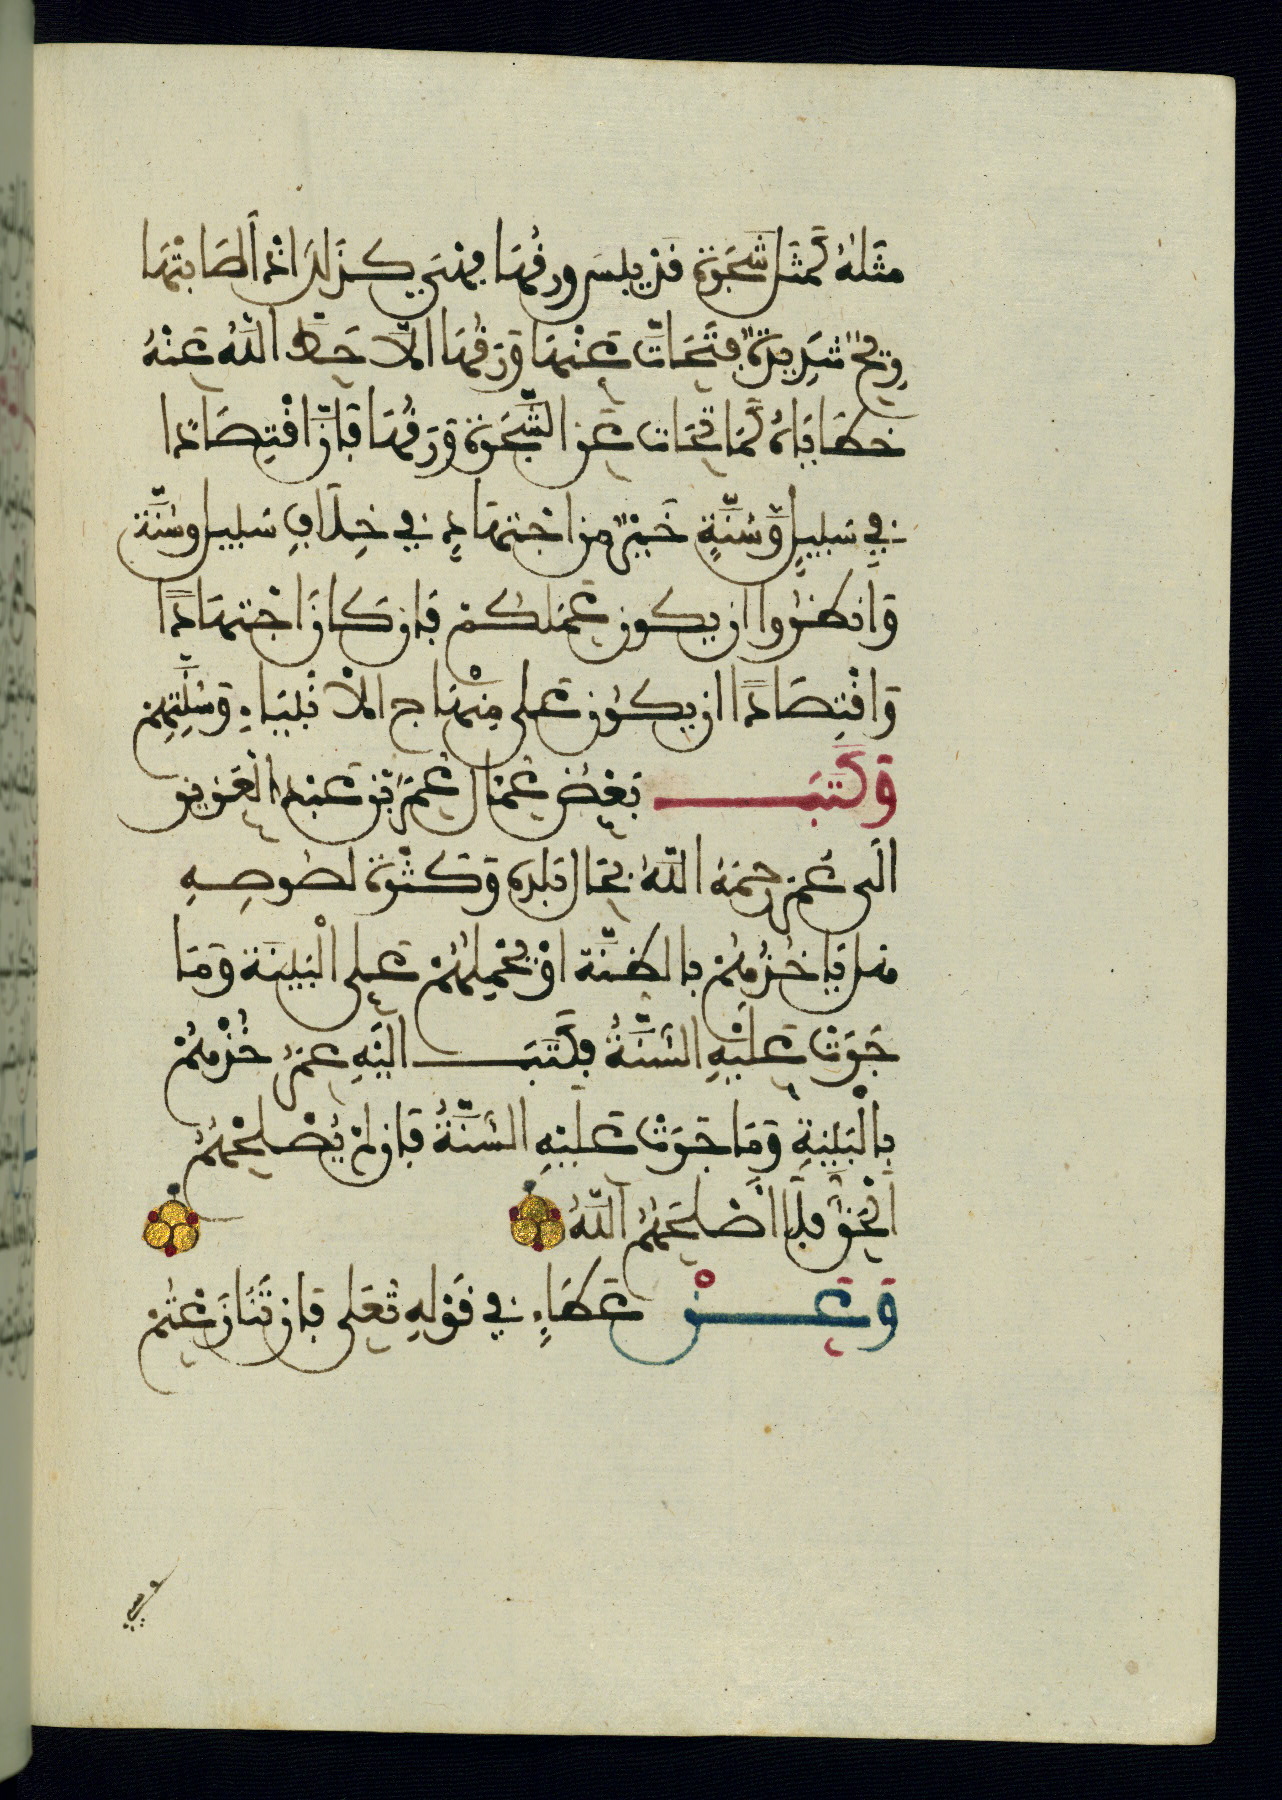 مَثَلُهُ كَمَثَلِ شَجَرَةٍ قَدْ يَبِسَ وَرَقُهَا فَهِيَ كَذَلِكَ إِذْ أَصَابَتْهَا
رِيحٌ شَدِيدَةٌ فَتَحَاتَّ عَنْهَا وَرَقُهَا إِلَّا حَطَّ اللَّهُ عَنْهُ
خَطَايَاهُ كَمَا تَحَاتَّ عَنِ الشَّجَرَةِ وَرَقُهَا فَإِنَّ اقْتِصَادًا
فِي سَبِيلٍ وَسُنَّةٍ خَيْرٌ مِنِ اجْتِهَادٍ فِي خِلَافِ سَبِيلٍ وَسُنَّةٍ
وَانْظُرُوا أَنْ يَكُونَ عَمَلُكُمْ فَإِنْ كَانَ اجْتِهَادًا
وَاقْتِصَادًا أَنْ يَكُونَ عَلَى مِنْهَاجِ الْأَنْبِيَاءِ وَسُنَّتِهِمْ
وَكَتَبَ بَعْضُ عُمَّالِ عُمَرَ بْنِ عَبْدِ الْعَزِيزِ
إِلَى عُمَرَ رَحِمَهُ اللَّهُ بِحَالِ بَلَدِهِ وَكَثْرَةِ لُصُوصِهِ
هَلْ يَأْخُذُهُمْ بِالظِّنَّةِ أَوْ يَحْمِلُهُمْ عَلَى الْبَيِّنَةِ وَمَا
جَرَتْ عَلَيْهِ السُّنَّةُ فَكَتَبَ إِلَيْهِ عُمَرُ خُذْهُمْ
بِالْبَيِّنَةِ وَمَا جَرَتْ عَلَيْهِ السُّنَّةُ فَإِنْ لَمْ يُصْلِحْهُمُ
الْحَقُّ فَلَا أَصْلَحَهُمُ اللَّهُ
وَعَنْ عَطَاءٍ فِي قَوْلِهِ تَعَلَى فَإِنْ تَنَازَعْتُمْ